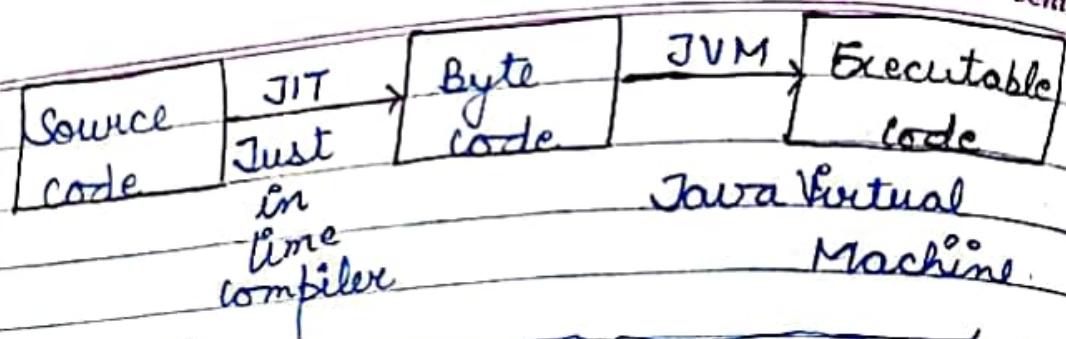 Source
code
JIT
Just
in
time
compiler
Byte
code
JVM
Executable
code
Java Virtual
Machine.